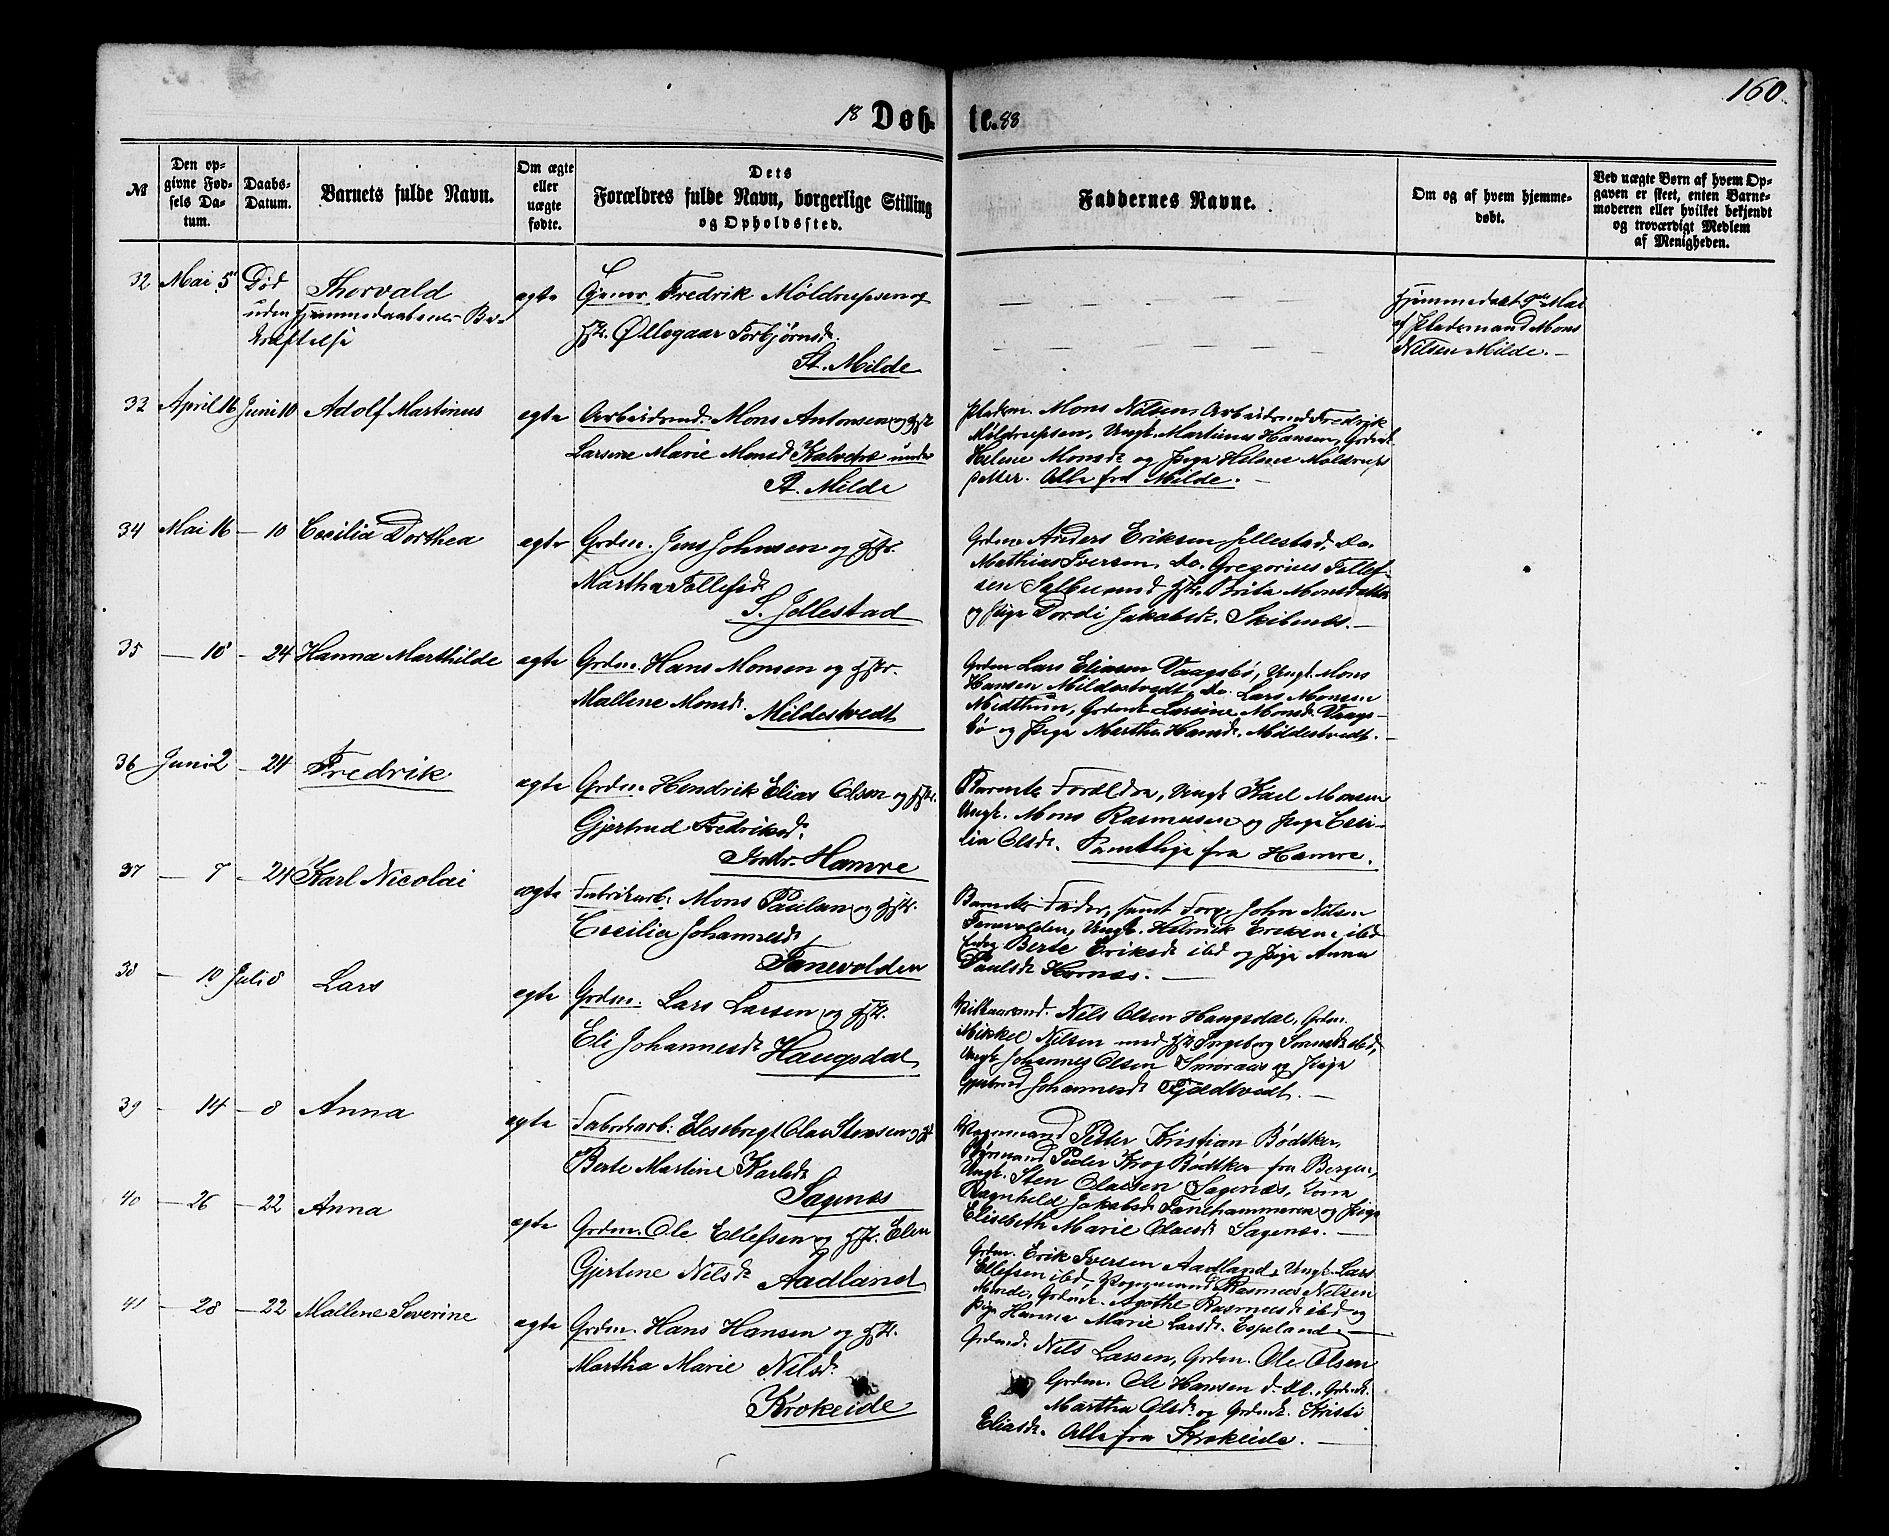 160.
18 Døb- te. 88
№
Den op-
givne Fød-
sels Da-
tum.
Daabs-
Datum.
Barnets fulde Navn.
Om ægte
eller
uægte
fødte.
Dets
Forældres fulde Navn, borgerlige Stilling
og Opholdssted.
Faddernes Navne.
Om og af hvem hjemme-
døbt.
Ved uægte Børn af hvem Op-
gaven er skeet, enten Barne-
moderen eller hvilket bekjendt
og troværdigt Medlem
af Menigheden.
32 Mai 5 Død
uden Hjemmedaabens Be-
kræftelse
Thorvald
egte
Fredrik Möldrupsen og
Hstr. Øllegaar Torbjørnsd.
St. Milde
Hjemmedøbt Mai
af Pladsmand Mons
Nilsen Milde. —
33 April 16 Juni 10 Adolf Martinus
egte
Arbeidsmd. Mons Antonsen og Hstr
Larsine Marie Monsd Kalvehe under
St. Milde
Pladsm. Mons Nilsen, Arbeidsmd Fredrik
Möldrupsen, Ungk. Martinus Hansen, Grdmk.
Helene Monsdr og Pige Helene Möldrups
datter. Alle fra Milde. —
34 Mai 16 — 10 Cecilia Dorthea
egte
Grdm. Jens Johnsen og Hstr.
Martha Tollefsdr
S. Jellestad
Grdm Anders Eriksen Jellestad, Do.
Mathias Iversen, Do. Gregorius Tollef-
sen Sælbu med Hstr. Brita Monsdatter
og Pige Dordi Jakobsdr. Skibenes. —
35 — 18 — 24 Hanna Marthilde
egte
Grdm. Hans Monsen og Hstr.
Mallene Monsdr.
Mildestvedt
Grdm Lars Eliasen Vaagsbø, Ungk. Mons
Hansen Mildestvedt, Do. Lars Monsen
Midthun, Grdmk Larsine Monsdr. Vaags-
bø og Pige Martha Hansdr. Mildestvedt. —
36 Juni 2 — 24 Fredrik
egte
Grdm. Hendrik Elias Olsen og Hstr.
Gjertrud Fredriksdr.
Indr. Hamre
Barnets Forældre, Ungk Karl Monsen
Ungk. Mons Rasmusen og Pige Ceci-
lia Olsdr. Samtlige fra Hamre.
37 — 7 — 24 Karl Nicolai
ægte
Fabrikarb. Mons Paulsen og Hstr.
Cecilia Johannesdr
Fanevolden
Barnets Fader, samt John Nilsen
Fanevolden, Ungk. Helmik Eriksen ibd
Berte Eriksdr ibd og Pige Anna
Paulsdr Hornæs. —
38 — 10 Juli 8 Lars
egte
Grdm. Lars Larsen og Hstr.
Eli Johannesdr Haugsdal
Nils Olsen Haugsdal, Grdm.
Mikkel Nilsen med Hstr Ingeborg ibd,
Ungk Johannes Olsen Smøraas og Pige
Gjertrud Johannesdr Fjeldtvedt. —
39 — 14 — 8 Anna
egte
Fabrikarb. Olai Stensen og Hstr
Berte Martine Karlsdr
Sagenæs
Peter Kristian Bödtker,
Peder Krog Bödtker fra Bergen,
Ungk. Sten Olaisen Sagenæs, Kona
Ragnhild Jakobsdr Fanehammeren og Pige
Elisebeth Marie Olaisdr Sagenæs. —
40 — 26 — 22 Anna
egte
Grdm. Ole Ellefsen og Hstr. Elen
Gjertine Nilsdr. Aadland
Grdm. Erik Iversen Aadland, Ungk. Lars
Ellefsen ibd, Rasmus Nilsen
Grdmk. Agathe Rasmusdr ibd og
Pige Hanna Marie Larsdr. Espeland. —
41 — 28 — 22 Mallene Severine
egte
Grdm. Hans Hansen og Hstr.
Martha Marie Nilsdr.
Krokeide
Grdmd. Nils Larsen, Grdm. Ole Olsen
Grdm. Ole Hansen Grdmk.
Martha Olsdr og Grdmk. Kristi
Eliasdr. Alle fra Krokeide. —